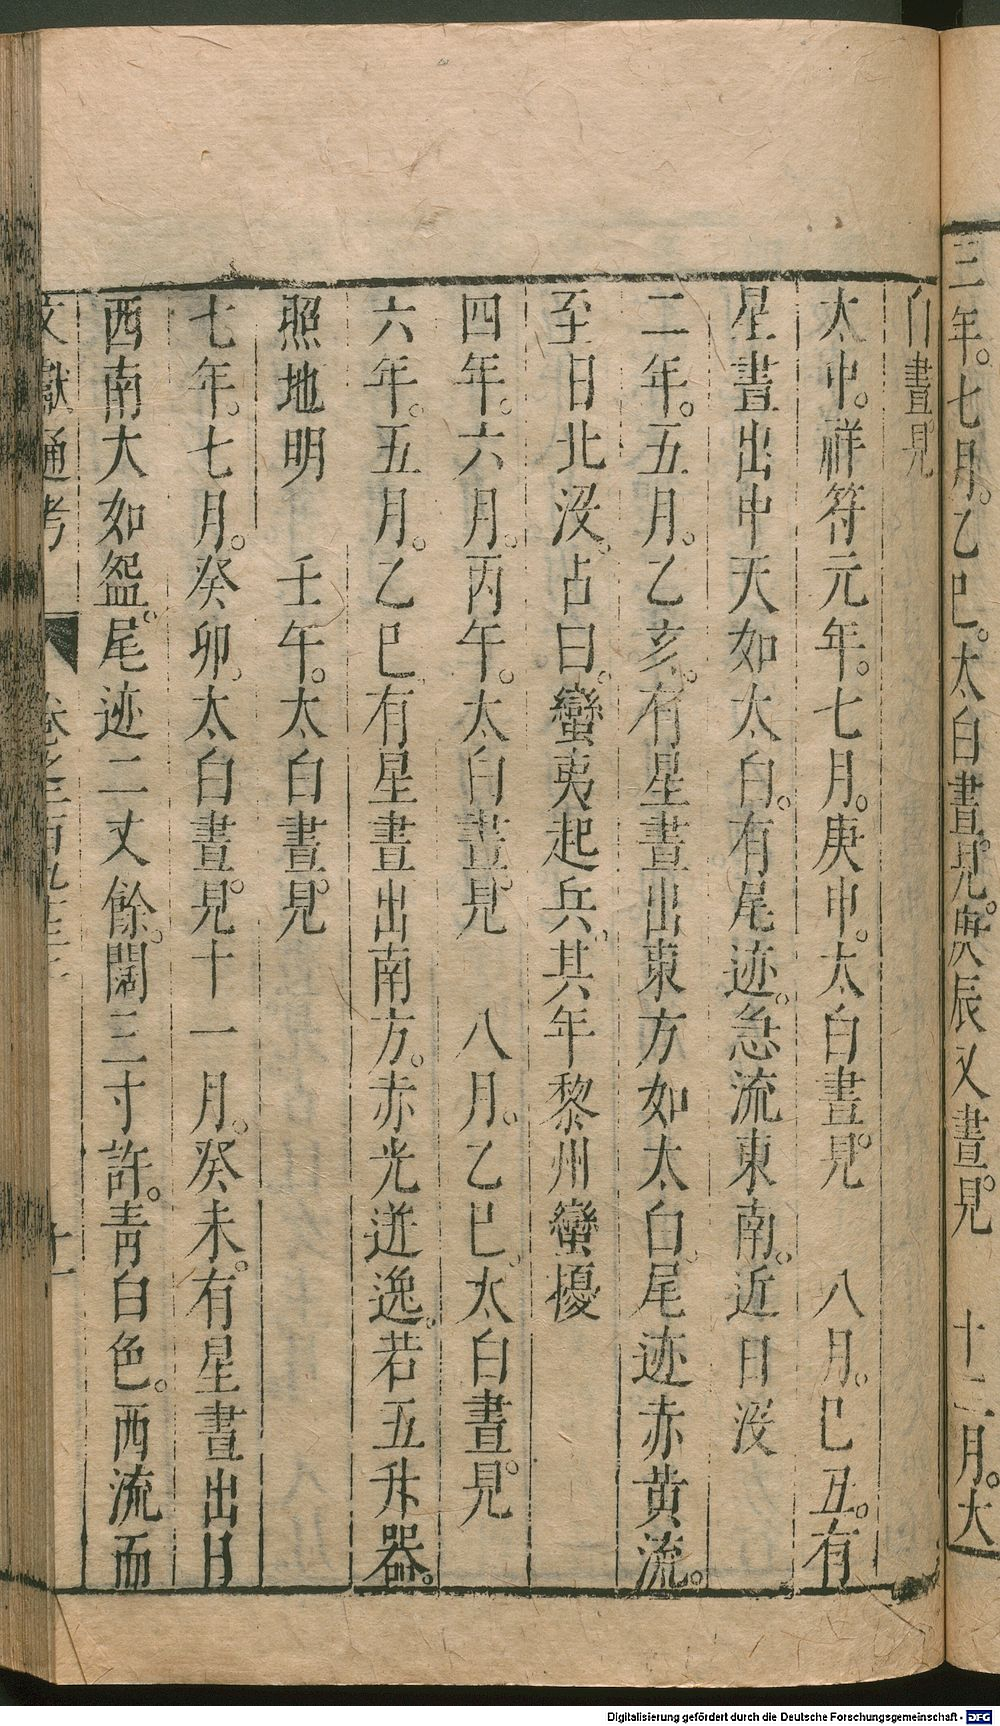 三年。七月。乙巳。太白晝見。庚辰又晝見　十二月。太
白晝見
大中。祥符元年。七月。庚申。太白晝見　八月。己丑。有
星晝出中天如太白。有尾迹。急流東南。近日沒
二年。五月。乙亥。有星晝出東方如太白。尾迹赤黄流。
至日北沒。占曰。蠻夷起兵。其年黎州蠻擾
四年。六月。丙午。太白晝見　八月。乙巳。太白晝見
六年。五月。乙巳有星晝出南方。赤光迸逸。若五升器。
照地明　壬午。太白晝見
七年。七月。癸卯。太白晝見十一月。癸未。有星晝出日
西南大如盌。尾迹二丈餘。闊三寸許。靑白色。西流而
文獻通考　卷之二百九十三　十一
Digitalisierung gefördert durch die Deutsche Forschungsgemeinschaft - DFG